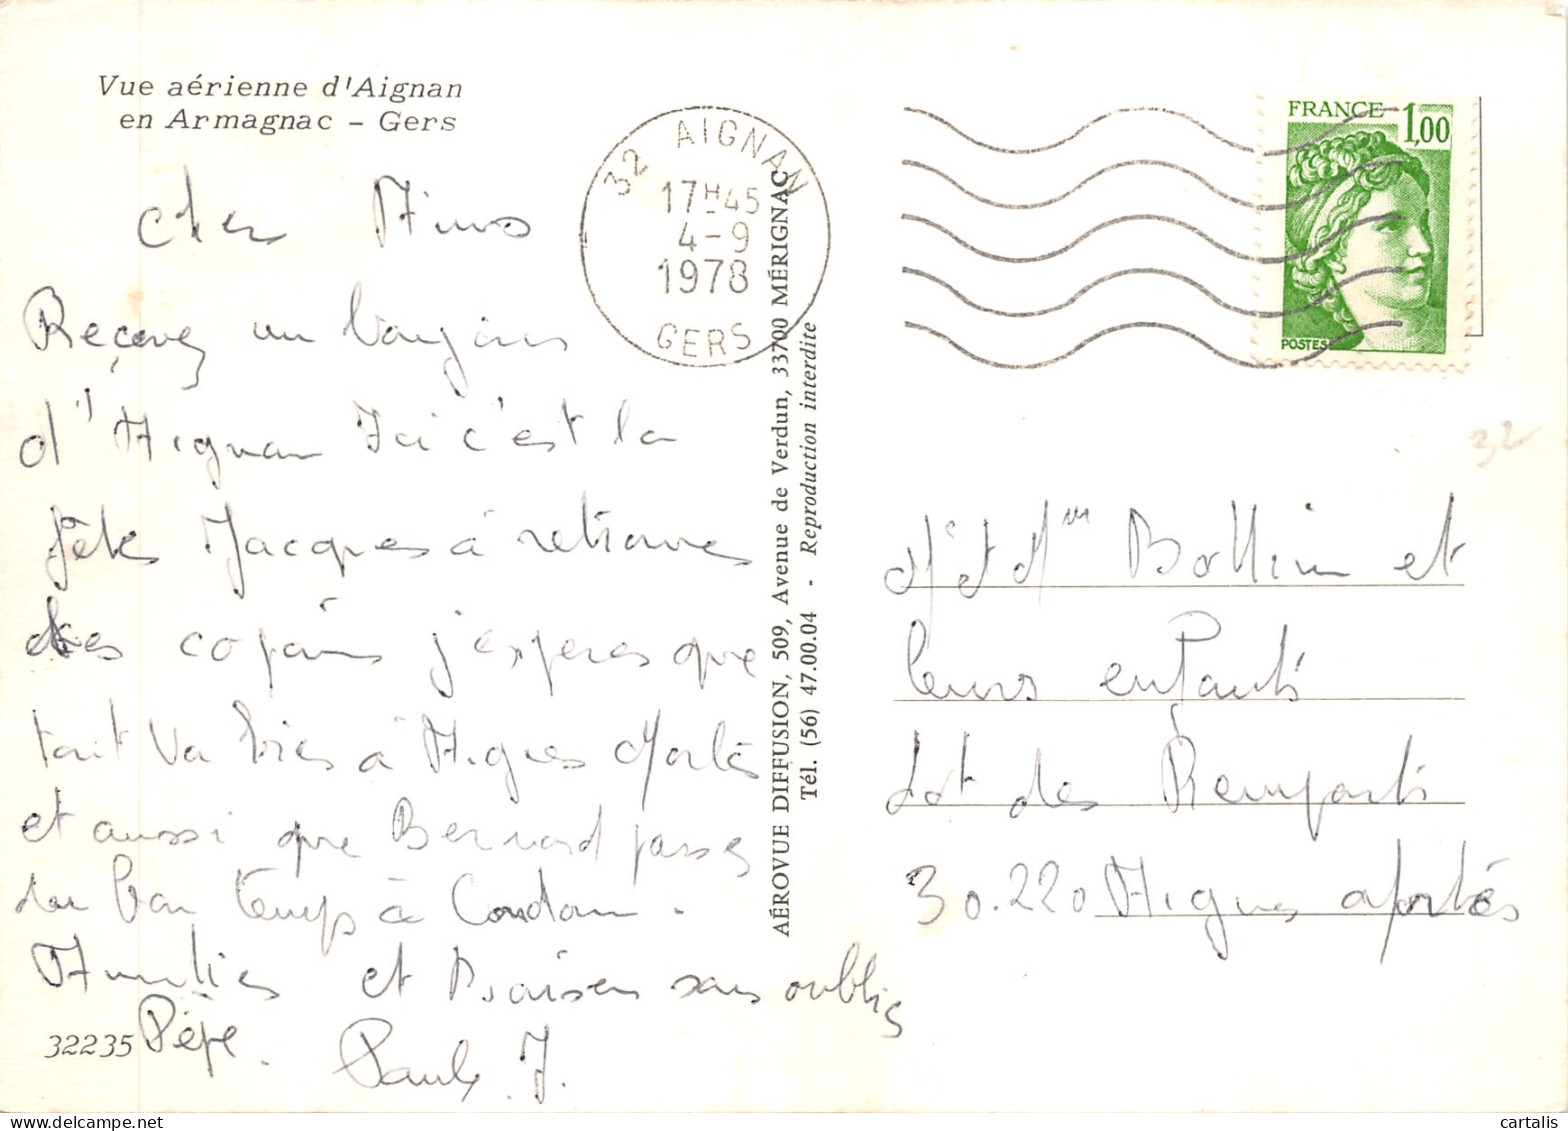 Vue aérienne d'Aignan
en Armagnac - Gers
32 AIGNAN
17H45
4-9
1978
GERS
FRANCE 1,00
POSTES
Cher Amis
Recevez un bonjour
d'Aignan Ici c'est la
fête Jacques à retrouves
des copains j'esperes que
tout va bies à Aigues Mortes
et aussi que Bernard passes
du bon temps à Condom.
Amities et Baisers sans oublies
Pépé.
Paule J.
32235
AÉROVUE DIFFUSION, 509, Avenue de Verdun, 33700 MÉRIGNAC
Tél. (56) 47.00.04 - Reproduction interdite
32
Mr et Mme Bollin et
leurs enfants
Lot des Remparts
30.220 Aigues Mortes
cartalis